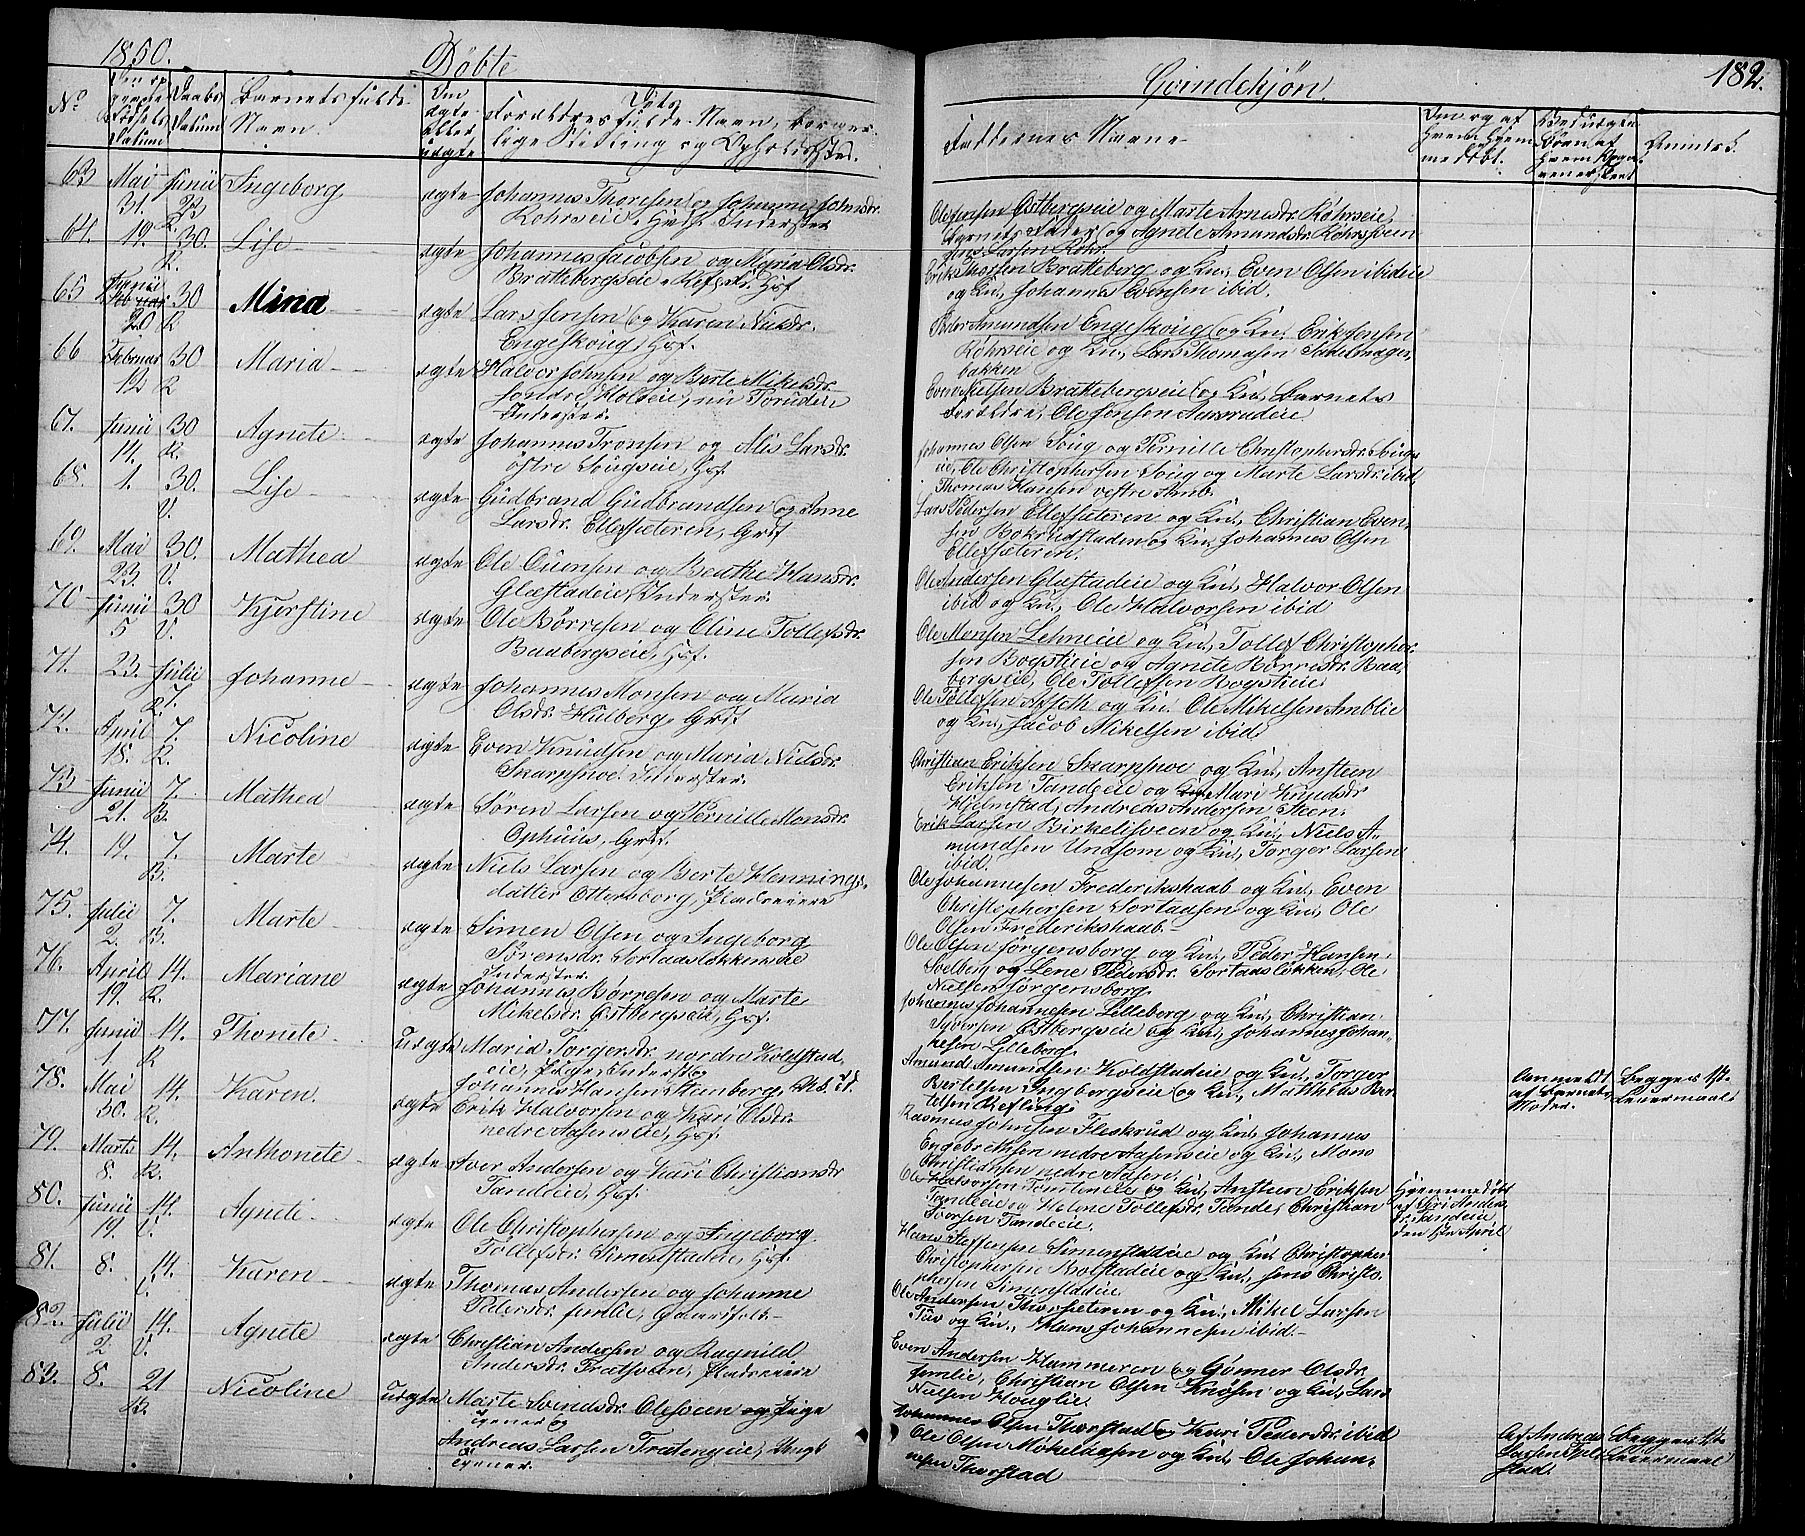 1850.
Döbte
Qvindekjön.
182.
No
Daabs
Datum
Barnets fulde
Navn.
Om
ægte
eller
uægte
Forældres fulde Navn, borger-
lige Stilling og Opholdssted.
Faddernes Navne
Om og af
hvem hjem-
medöbt.
Anmærk.
63 Mai 31. Junii 23 R. Ingeborg ægte Johannes Thoresen og Johanne Johnsdr.
Röhrseie, Inderster
Ole Jensen Östbergseie og Marte Arnesdr. Röhrseie,
Barnets Fader og Agnete Amundsdr.
Jens Larsen Röhr.
64. 19. 30. R. Lise ægte Johannes Jacobsen og Maria Olsdr.
Brattebergseie, Hsf
Erik Thorsen Bratteberg og Kn., Even Olsen ibideie
og Kn., Johannes Evensen ibid.
65 Junii 20 30 R Mina ægte Lars Jensen og Karen Nilsdr.
Engeskoug, Hsf.
Peder Amundsen Engeskoug og Kn., Erik Jensen
Röhrseie og Kn., Lars Thomasen Sadelmager-
bakken
66 Februar 12 30 R Maria ægte Halvor Johnsen og Berte Mikelsdr.
söndre Holseie, nu Torudeie
Inderster.
Even Nielsen Brattebergseie og Kn., Barnets
Forældre, Ole Jonsen Aasrudeie
67. Junii 14. 30 R. Agnete ægte Johannes Tronsen og Alis Larsdr.
östre Sougseie, Hsf
Johannes Olsen Soug og Pernille Christophersdr. Sougs-
eie, Ole Christophersen Soug og Marte Larsdr. ibid,
Thomas Hansen vestre Amb.
68. 1. 30. V. Lise ægte Gudbrand Gudbrandsen og Anne
Larsdr. Ellefsæteren, Grdf
Lars Pedersen Ellefsæteren og Kn., Christian Even-
sen Bokrudstaden og Kn., Johannes Olsen
Ellefsæteren.
69. Mai 23. 30. V. Mathea ægte Ole Ouensen og Beathe Hansdr.
Glæstadeie, Inderster.
Ole Andersen Glæstadeie og Kn., Halvor Olsen
ibid og Kn., Ole Halvorsen ibid
70 Junii 5 30 V. Kjerstine ægte Ole Börresen og Oline Tollefsdr.
Baabergseie, Hsf.
Ole Monsen Lehneeie og Kn., Tollef Christopher-
sen Bogstieie og Agnete Börresdr. Baa-
bergseie, Ole Tollefsen Bogstieie
71. 23. Julii 7. R. Johanne ægte Johannes Monsen og Maria
Olsdr. Hulberg, Grdf
Ole Tollefsen Alseth og Kn. Ole Mikelsen Amblie
og Kn., Jacob Mikelsen ibid
72. April 18. 7. R. Nicoline ægte Even Knudsen og Maria Nielsdr.
Skarpsnoe Inderster.
Christian Eriksen Skarpsnoe og Kn., Ansteen
Eriksen Tandeeie og Mari Knudsdr
Hjelmstad, Andreas Andersen Steen.
73 Junii 21. 7. B. Mathea ægte Sören Larsen og Pernille Monsdr.
Ophuus, Grdf.
Erik Larsen Birkelisveen og Kn., Niels A-
mundsen Undsom og Kn., Torger Larsen
ibid.
74. 19. 7. B. Marte ægte Niels Larsen og Berte Hennings-
datter Ottersborg, Pladseiere
Ole Johannesen Frederikshaab og Kn., Even
Christophersen Sortaasen og Kn., Ole
Olsen Frederikshaab.
75. Julii 2. 7. B. Marte ægte Simen Olsen og Ingeborg
Sörensdr. Sortaaslökkeneie
Inderster.
Ole Olsen Jörgensborg og Kn., Peder Hansen
Solberg og Lene Pedersdr. Sortaaslökken, Ole
Nielsen Jörgensborg.
76. April 19. 14. R. Mariane ægte Johannes Börresen og Marte
Mikelsdr. Östbergseie, Hsf.
Johannes Johannesen Lilleberg og Kn., Christian
Syversen Östbergseie og Kn., Johannes Johan-
nesen Lilleberg
77. Junii 1 14. R Thonete uægte Maria Torgersdr. nordre Koldstad-
eie, Pige, Inderst og
Johannes Hansen Stenberg
Amund Amundsen Koldstadeie og Kn., Torger
Bertelsen Ingbergseie og Kn., Matthias Ber-
telsen Refling.
anmeldt
af Barnets
Moder.
Begges 1ste
Leiermaal.
78. Mai 30. 14. R. Karen. ægte Erik Halvorsen og Kari Olsdr.
nedre Aasenseie, Hsf.
Rasmus Johnsen Fleskrud og Kn., Johannes
Engebrethsen nedre Aasenseie og Kn., Mons
Christiansen nedre Aasen.
79. Marts 8. 14. R. Anthonete ægte Iver Andersen og Kari Christiansdr
Tandeie, Hsf.
Ole Halvorsen og Kn., Ansteen Eriksen
Tandeie og Helene Tollefsdr. Tande, Christian
Iversen Tandeeie.
Hjemmedöbt
80. Junii 19. 14. V. Agnete ægte Ole Christophersen og Ingeborg
Tollefsdr. Simenstadeie, Hsf.
Hans Steffensen Simenstadeie og Kn. Christopher
Christophersen Bolstadeie og Kn., Jens Christo-
phersen Simenstadeie
81. 8. 14. V. Karen ægte Thomas Andersen og Johanne
Pedersdr. Jemlie,
Ole Andersen Thorsæteren og Kn., Mikel Larsen
og Kn., Hans Johannesen ibid.
82. Julii 2. 14. V. Agnete ægte Christian Andersen og Ragnild
Andersdr. Pladseiere
Even Andersen Hammeren og Gunner Olsdr.
Jemlie, Christian Olsen Knösen og Kn., Lars
Nielsen Houglie.
83. 8. 21 B. Nicoline uægte Marte Svendsdr. Olesveen Pige
tjener og
Andreas Larsen Ungk
tjener.
Johannes Olsen Thorstad og Kari Pedersdr. ibid
Ole Olsen og Kn., Ole Johan-
nesen Thorstad
Af Andreas
Larsen
stad.
Begges 1ste
Leiermaal